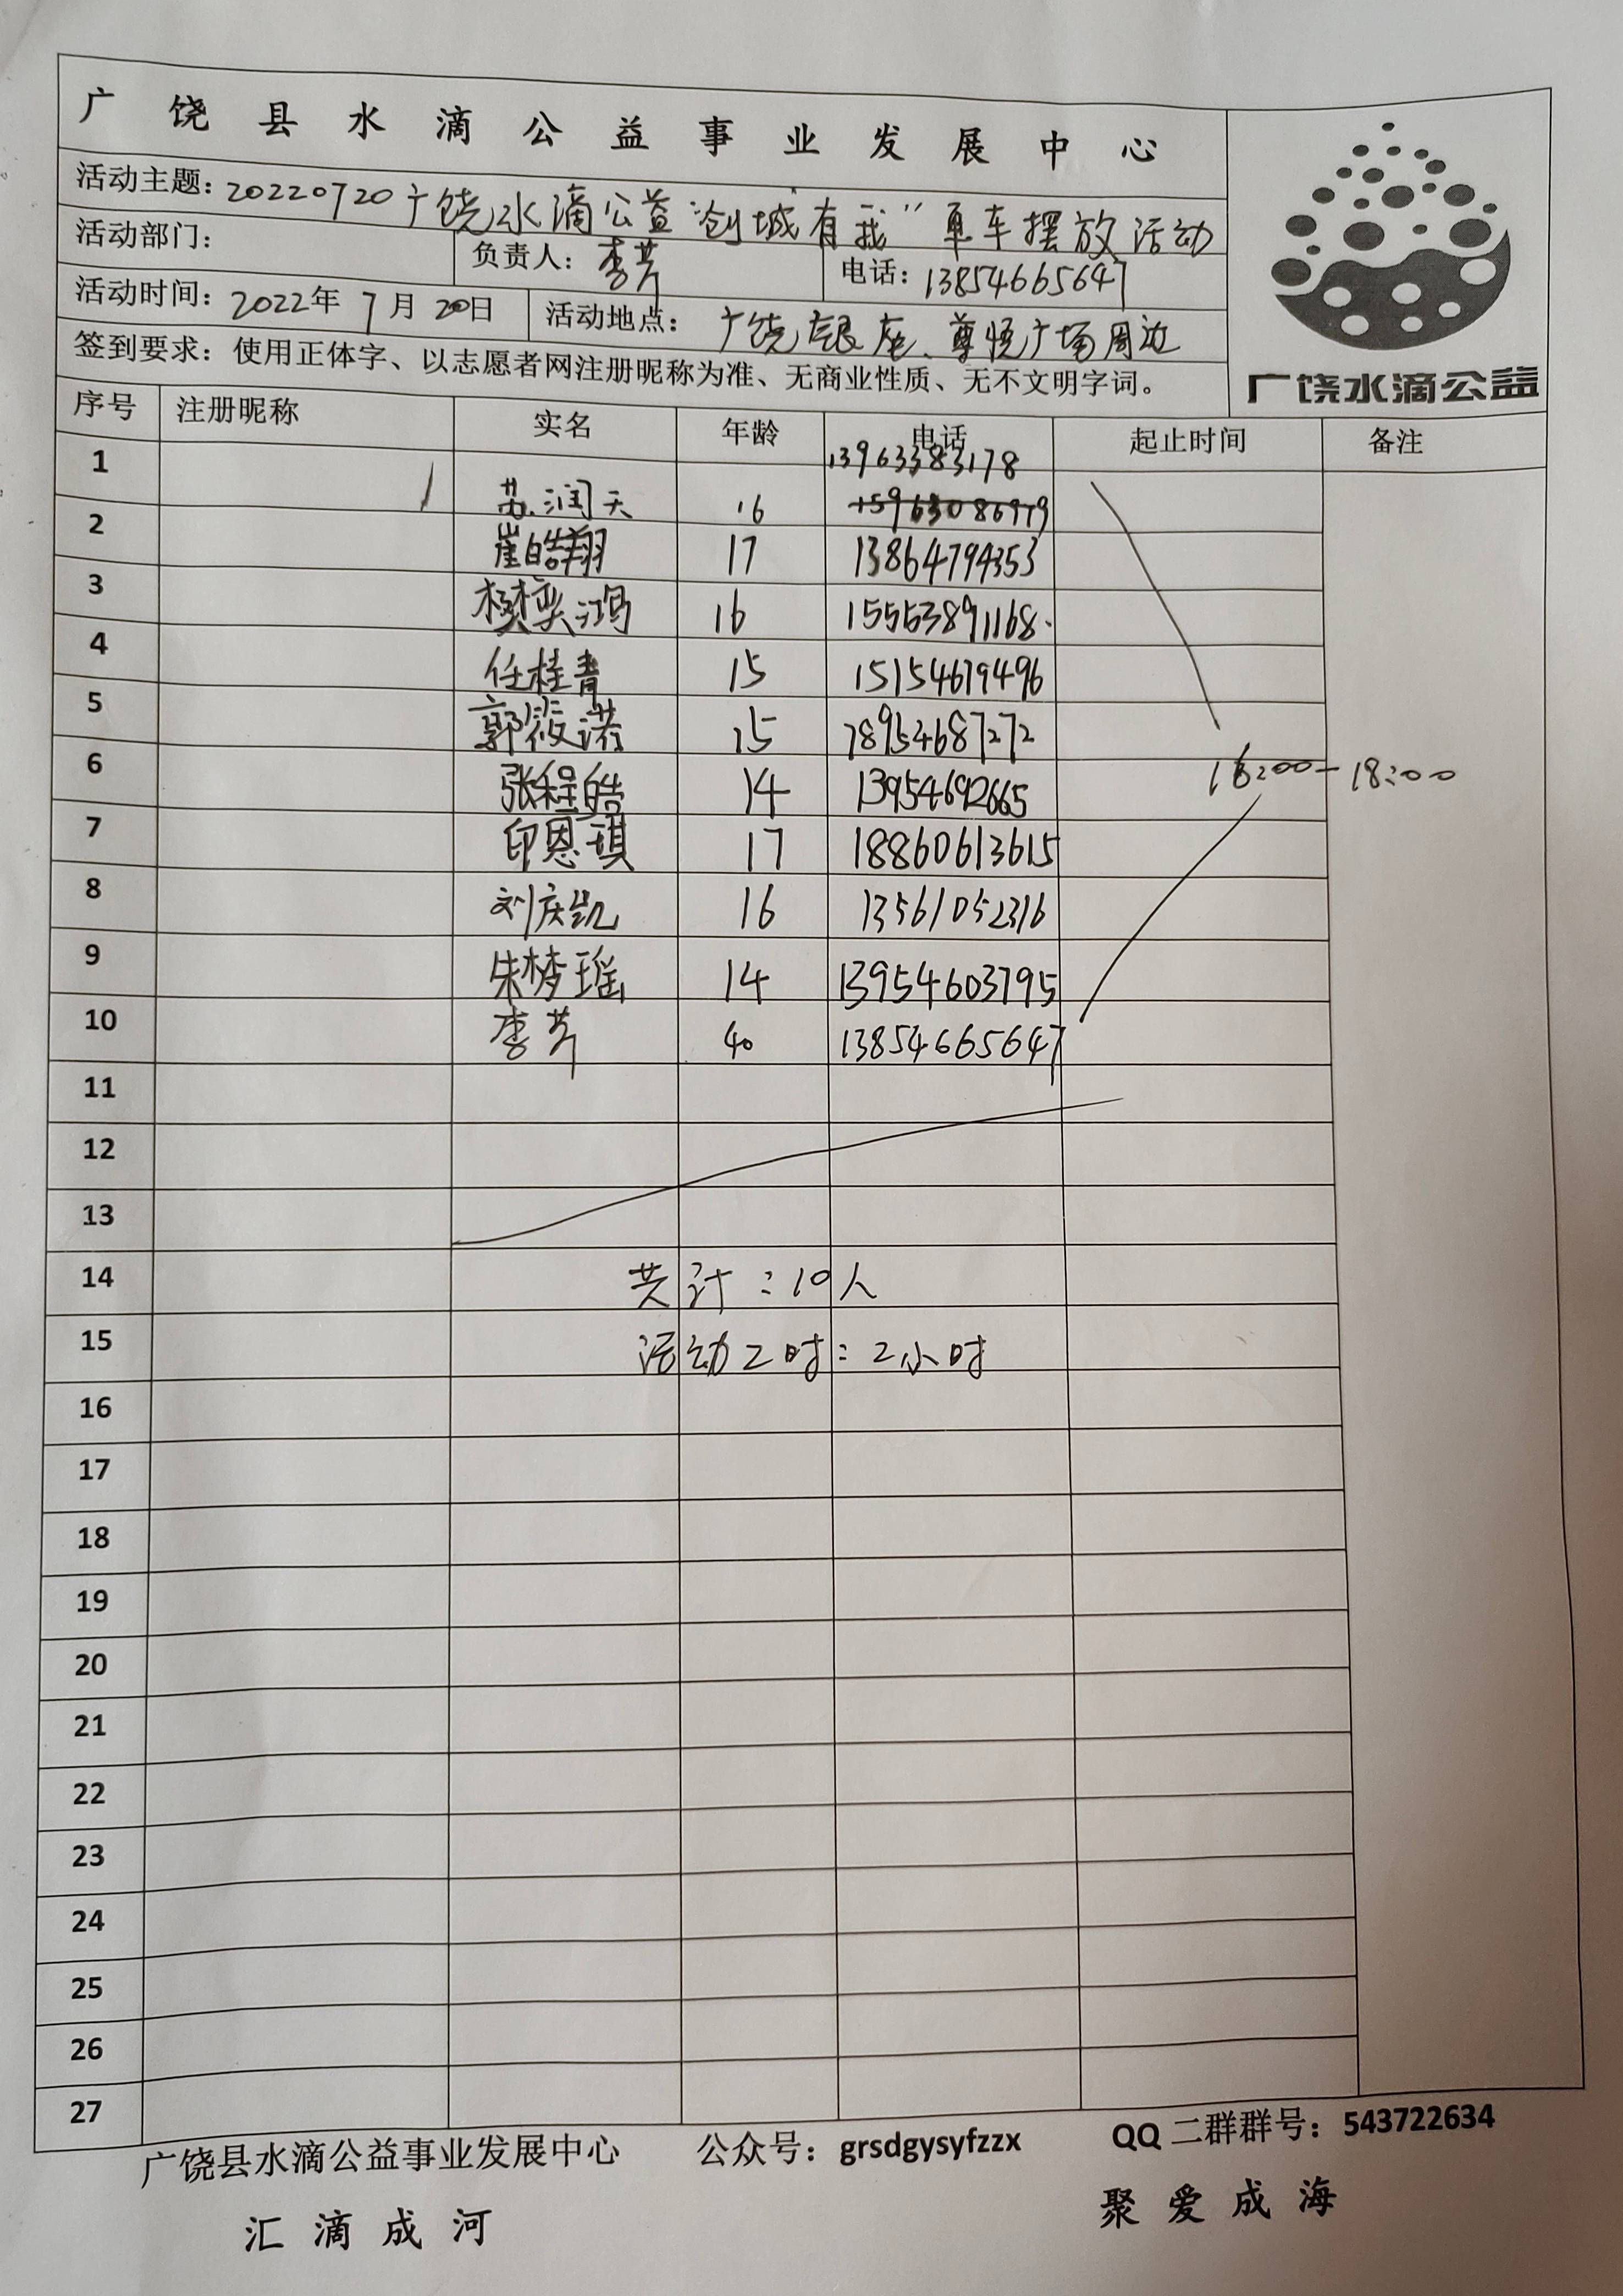 广饶县水滴公益事业发展中心
活动主题：20220720广饶水滴公益"创城有我"单车摆放活动
活动部门： 负责人：李芹 电话：13854665647
活动时间：2022年7月20日 活动地点：广饶银座、尊悦广场周边
签到要求：使用正体字、以志愿者网注册昵称为准、无商业性质、无不文明字词。
广饶水滴公益
序号 注册昵称 实名 年龄 电话 起止时间 备注
13963383178
1 苏润天 16
2 崔皓翔 17 13864794353
3 樊奕鸿 16 15553891168
4 任桂青 15 15154679496
5 郭筱诺 15 18954687272
6 张程皓 14 13954692665
16:00-18:00
7 印恩琪 17 18860613615
8 刘庆凯 16 13561052316
9 朱梦瑶 14 13954603795
10 李芹 40 13854665647
11
12
13
14 共计：10人
15 活动工时：2小时
16
17
18
19
20
21
22
23
24
25
26
27
广饶县水滴公益事业发展中心 公众号：grsdgysyfzzx QQ二群群号：543722634
汇滴成河 聚爱成海